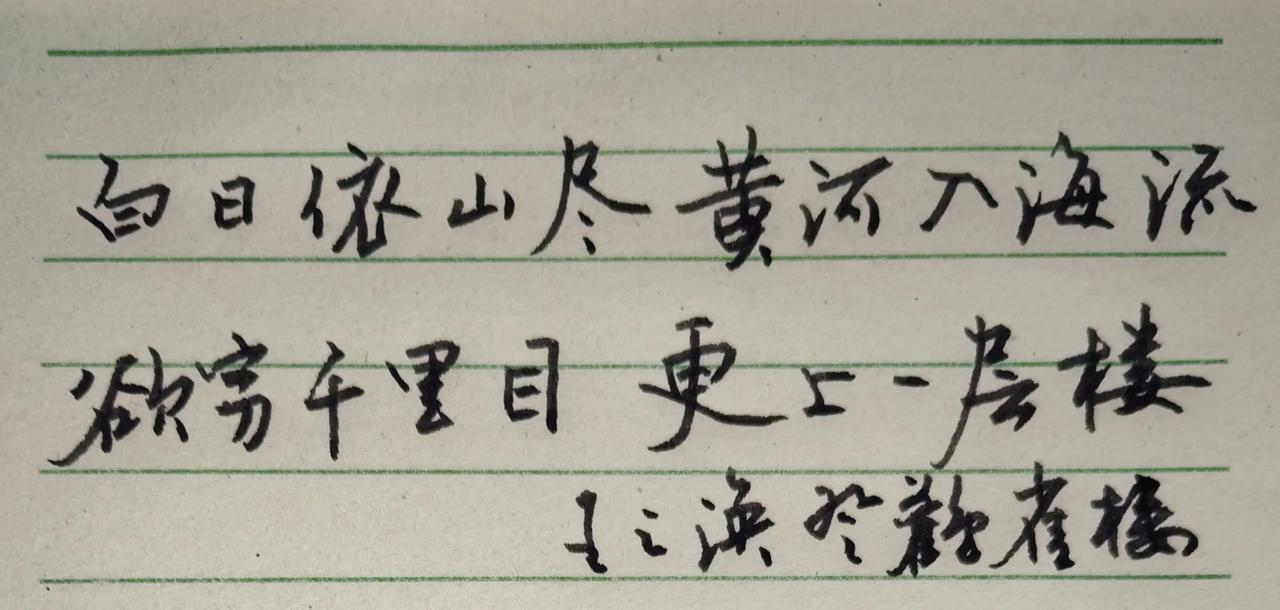 白日依山尽 黄河入海流
欲穷千里目 更上一层楼
王之涣登鹳雀楼